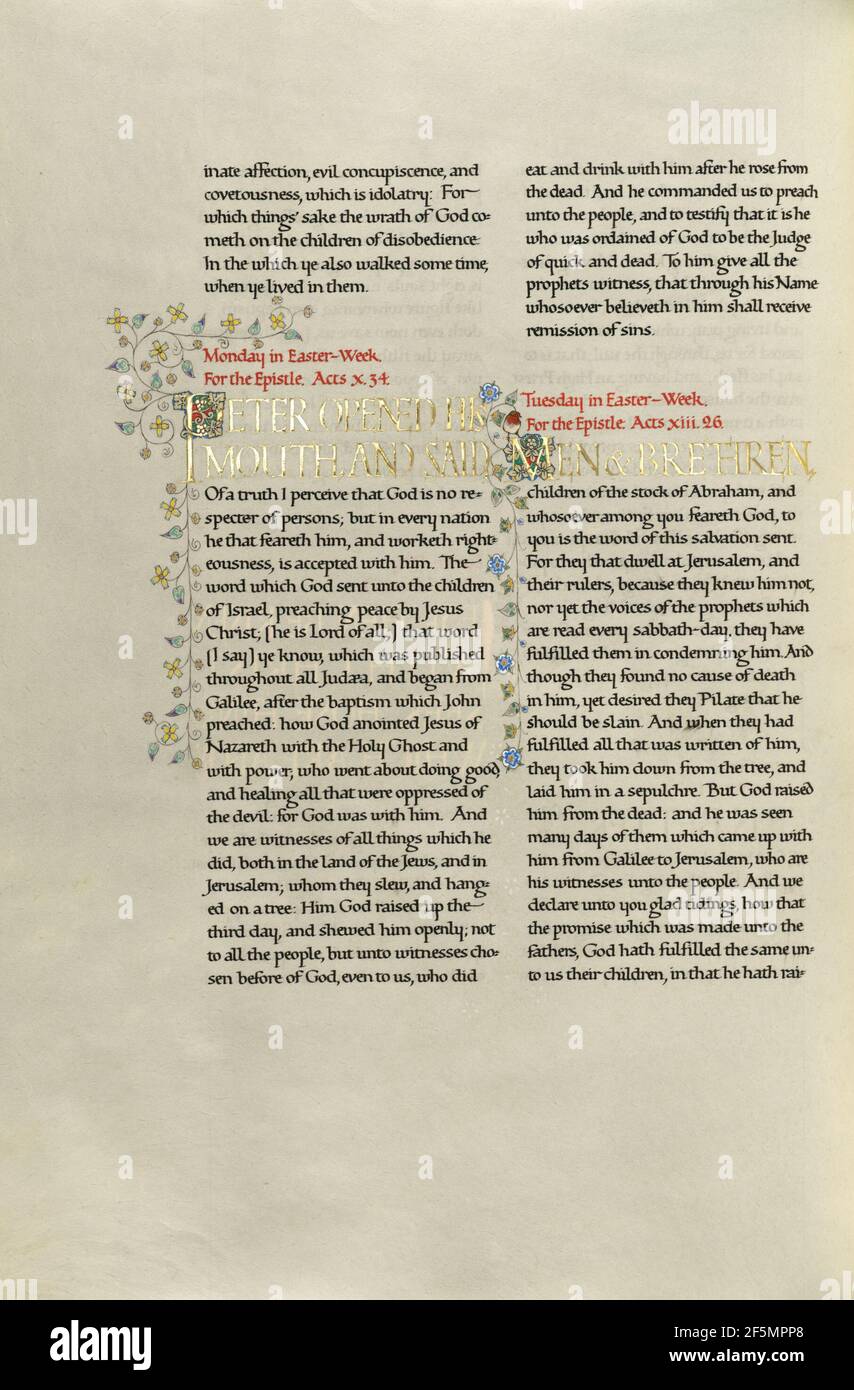 inate affection, evil concupiscence, and
covetousness, which is idolatry: For
which things' sake the wrath of God co=
meth on the children of disobedience:
In the which ye also walked some time,
when ye lived in them.
Monday in Easter-Week.
For the Epistle. Acts x. 34.
PETER OPENED HIS
MOUTH, AND SAID,
Of a truth I perceive that God is no re=
specter of persons; but in every nation
he that feareth him, and worketh right=
eousness, is accepted with him. The
word which God sent unto the children
of Israel, preaching peace by Jesus
Christ; (he is Lord of all:) that word
(I say) ye know, which was published
throughout all Judæa, and began from
Galilee, after the baptism which John
preached: how God anointed Jesus of
Nazareth with the Holy Ghost and
with power; who went about doing good,
and healing all that were oppressed of
the devil: for God was with him. And
we are witnesses of all things which he
did, both in the land of the Jews, and in
Jerusalem; whom they slew, and hang=
ed on a tree: Him God raised up the
third day, and shewed him openly; not
to all the people, but unto witnesses cho=
sen before of God, even to us, who did
eat and drink with him after he rose from
the dead. And he commanded us to preach
unto the people, and to testify that it is he
who was ordained of God to be the Judge
of quick and dead. To him give all the
prophets witness, that through his Name
whosoever believeth in him shall receive
remission of sins.
Tuesday in Easter-Week.
For the Epistle: Acts xiii. 26.
MEN & BRETHREN,
children of the stock of Abraham, and
whosoever among you feareth God, to
you is the word of this salvation sent.
For they that dwell at Jerusalem, and
their rulers, because they knew him not,
nor yet the voices of the prophets which
are read every sabbath-day, they have
fulfilled them in condemning him. And
though they found no cause of death
in him, yet desired they Pilate that he
should be slain. And when they had
fulfilled all that was written of him,
they took him down from the tree, and
laid him in a sepulchre. But God raised
him from the dead: and he was seen
many days of them which came up with
him from Galilee to Jerusalem, who are
his witnesses unto the people. And we
declare unto you glad tidings, how that
the promise which was made unto the
fathers, God hath fulfilled the same un=
to us their children, in that he hath rai=
alamy
Image ID: 2F5MPP8
www.alamy.com